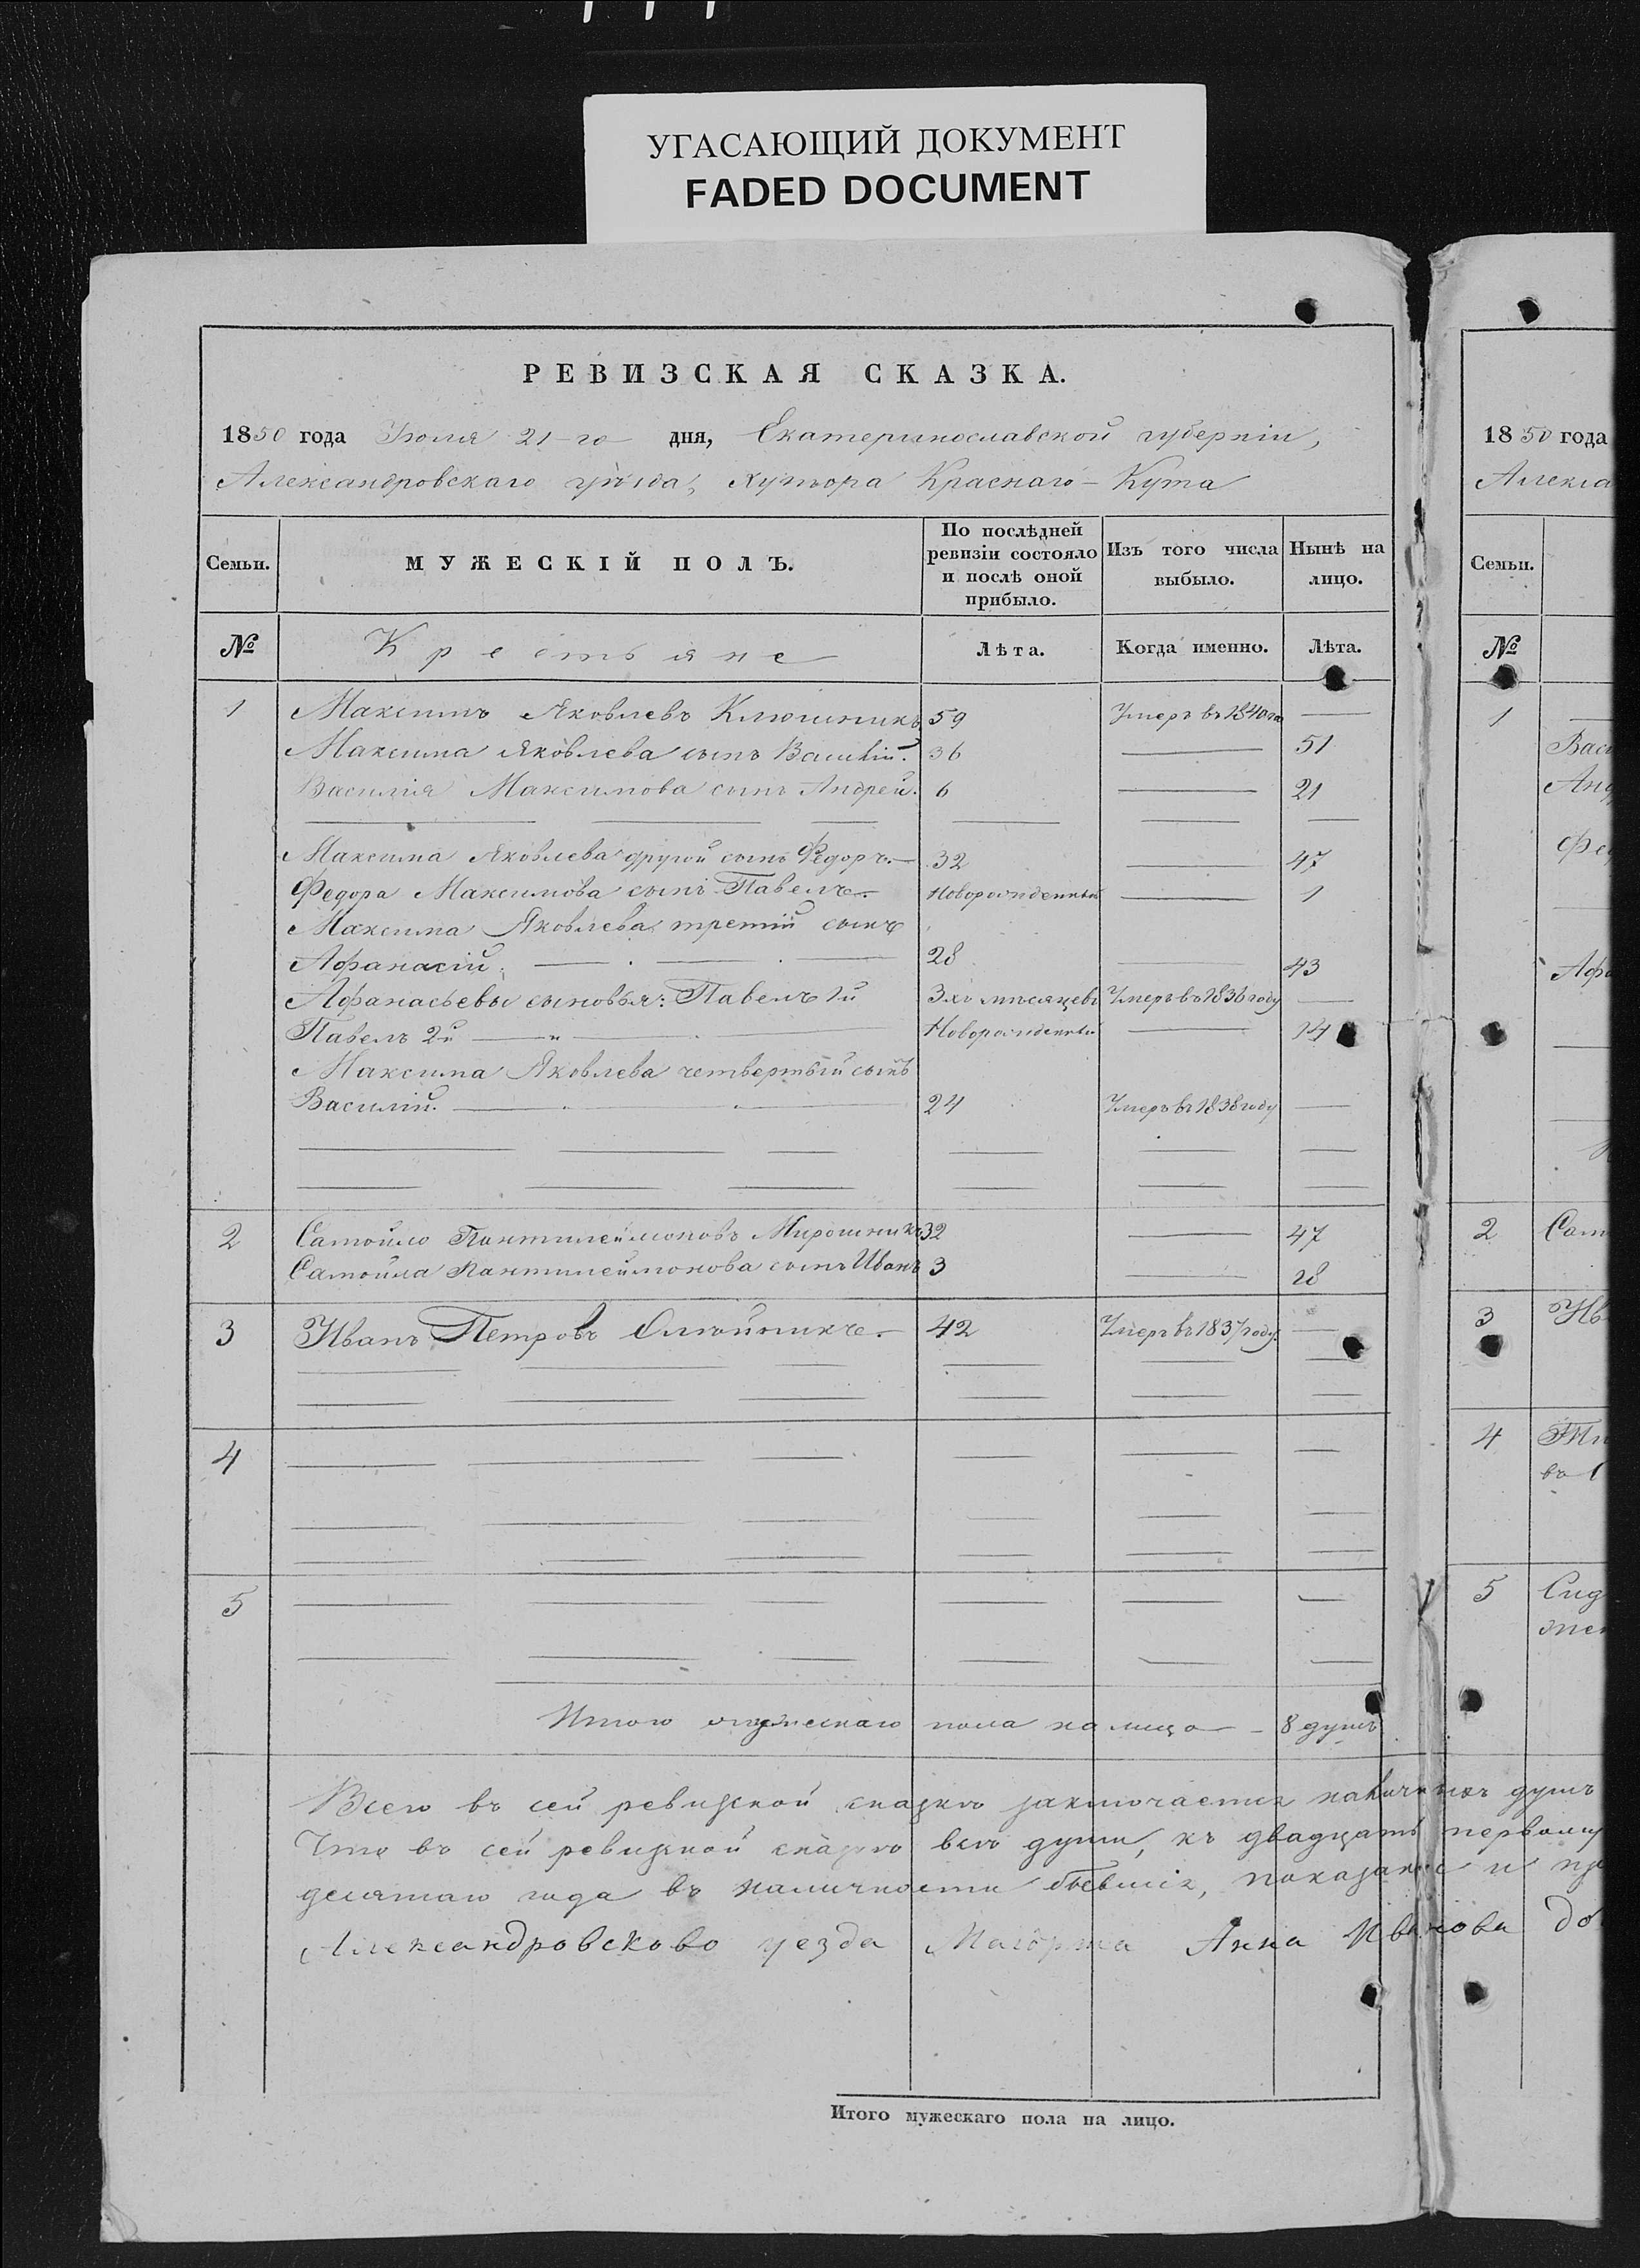 УГАСАЮЩИЙ ДОКУМЕНТ
FADED DOCUMENT
РЕВИЗСКАЯ СКАЗКА.
1850 года Іюля 21-го дня, Екатеринославской губерніи,
Александровскаго уѣзда, хутора Краснаго-Кута
Семьи. МУЖЕСКІЙ ПОЛЪ. По послѣдней ревизіи состояло и послѣ оной прибыло. Изъ того числа выбыло. Нынѣ на лицо.
№ Крестьяне Лѣта. Когда именно. Лѣта.
1 Максимъ Яковлевъ Ключникъ 59 Умеръ въ 1840 го
Максима Яковлева сынъ Василій. 36 51
Василія Максимова сынъ Андрей. 6 21
Максима Яковлева другой сынъ Федоръ. 32 47
Федора Максимова сынъ Павелъ. Новорожденный 1
Максима Яковлева третій сынъ
Афанасій. 28 43
Афанасьевы сыновья: Павелъ 1й 3хъ мѣсяцевъ Умеръ въ 1836 году
Павелъ 2й Новорожденный 14
Максима Яковлева четвертый сынъ
Василій. 24 Умеръ въ 1838 году
2 Самойло Пантилеймоновъ Мирошникъ 32 47
Самойла Пантилеймонова сынъ Иванъ 3 28
3 Иванъ Петровъ Олѣйникъ. 42 Умеръ въ 1837 году.
4
5
Итого мужескаго пола на лицо 8 душъ
Всего въ сей ревизской сказкѣ заключается наличныхъ душъ
Что въ сей ревизской сказкѣ всѣ души, къ двадцать первому
десятаго года въ наличности бывшія, показаны и
Александровсково уезда Маіорша Анна Иванова
Итого мужескаго пола на лицо.
1850 года
Алекса
Семьи.
№
1
Васи
Анд
Фе
Афа
2 Сам
3 Ив
4
въ 1
5 Сид
жен